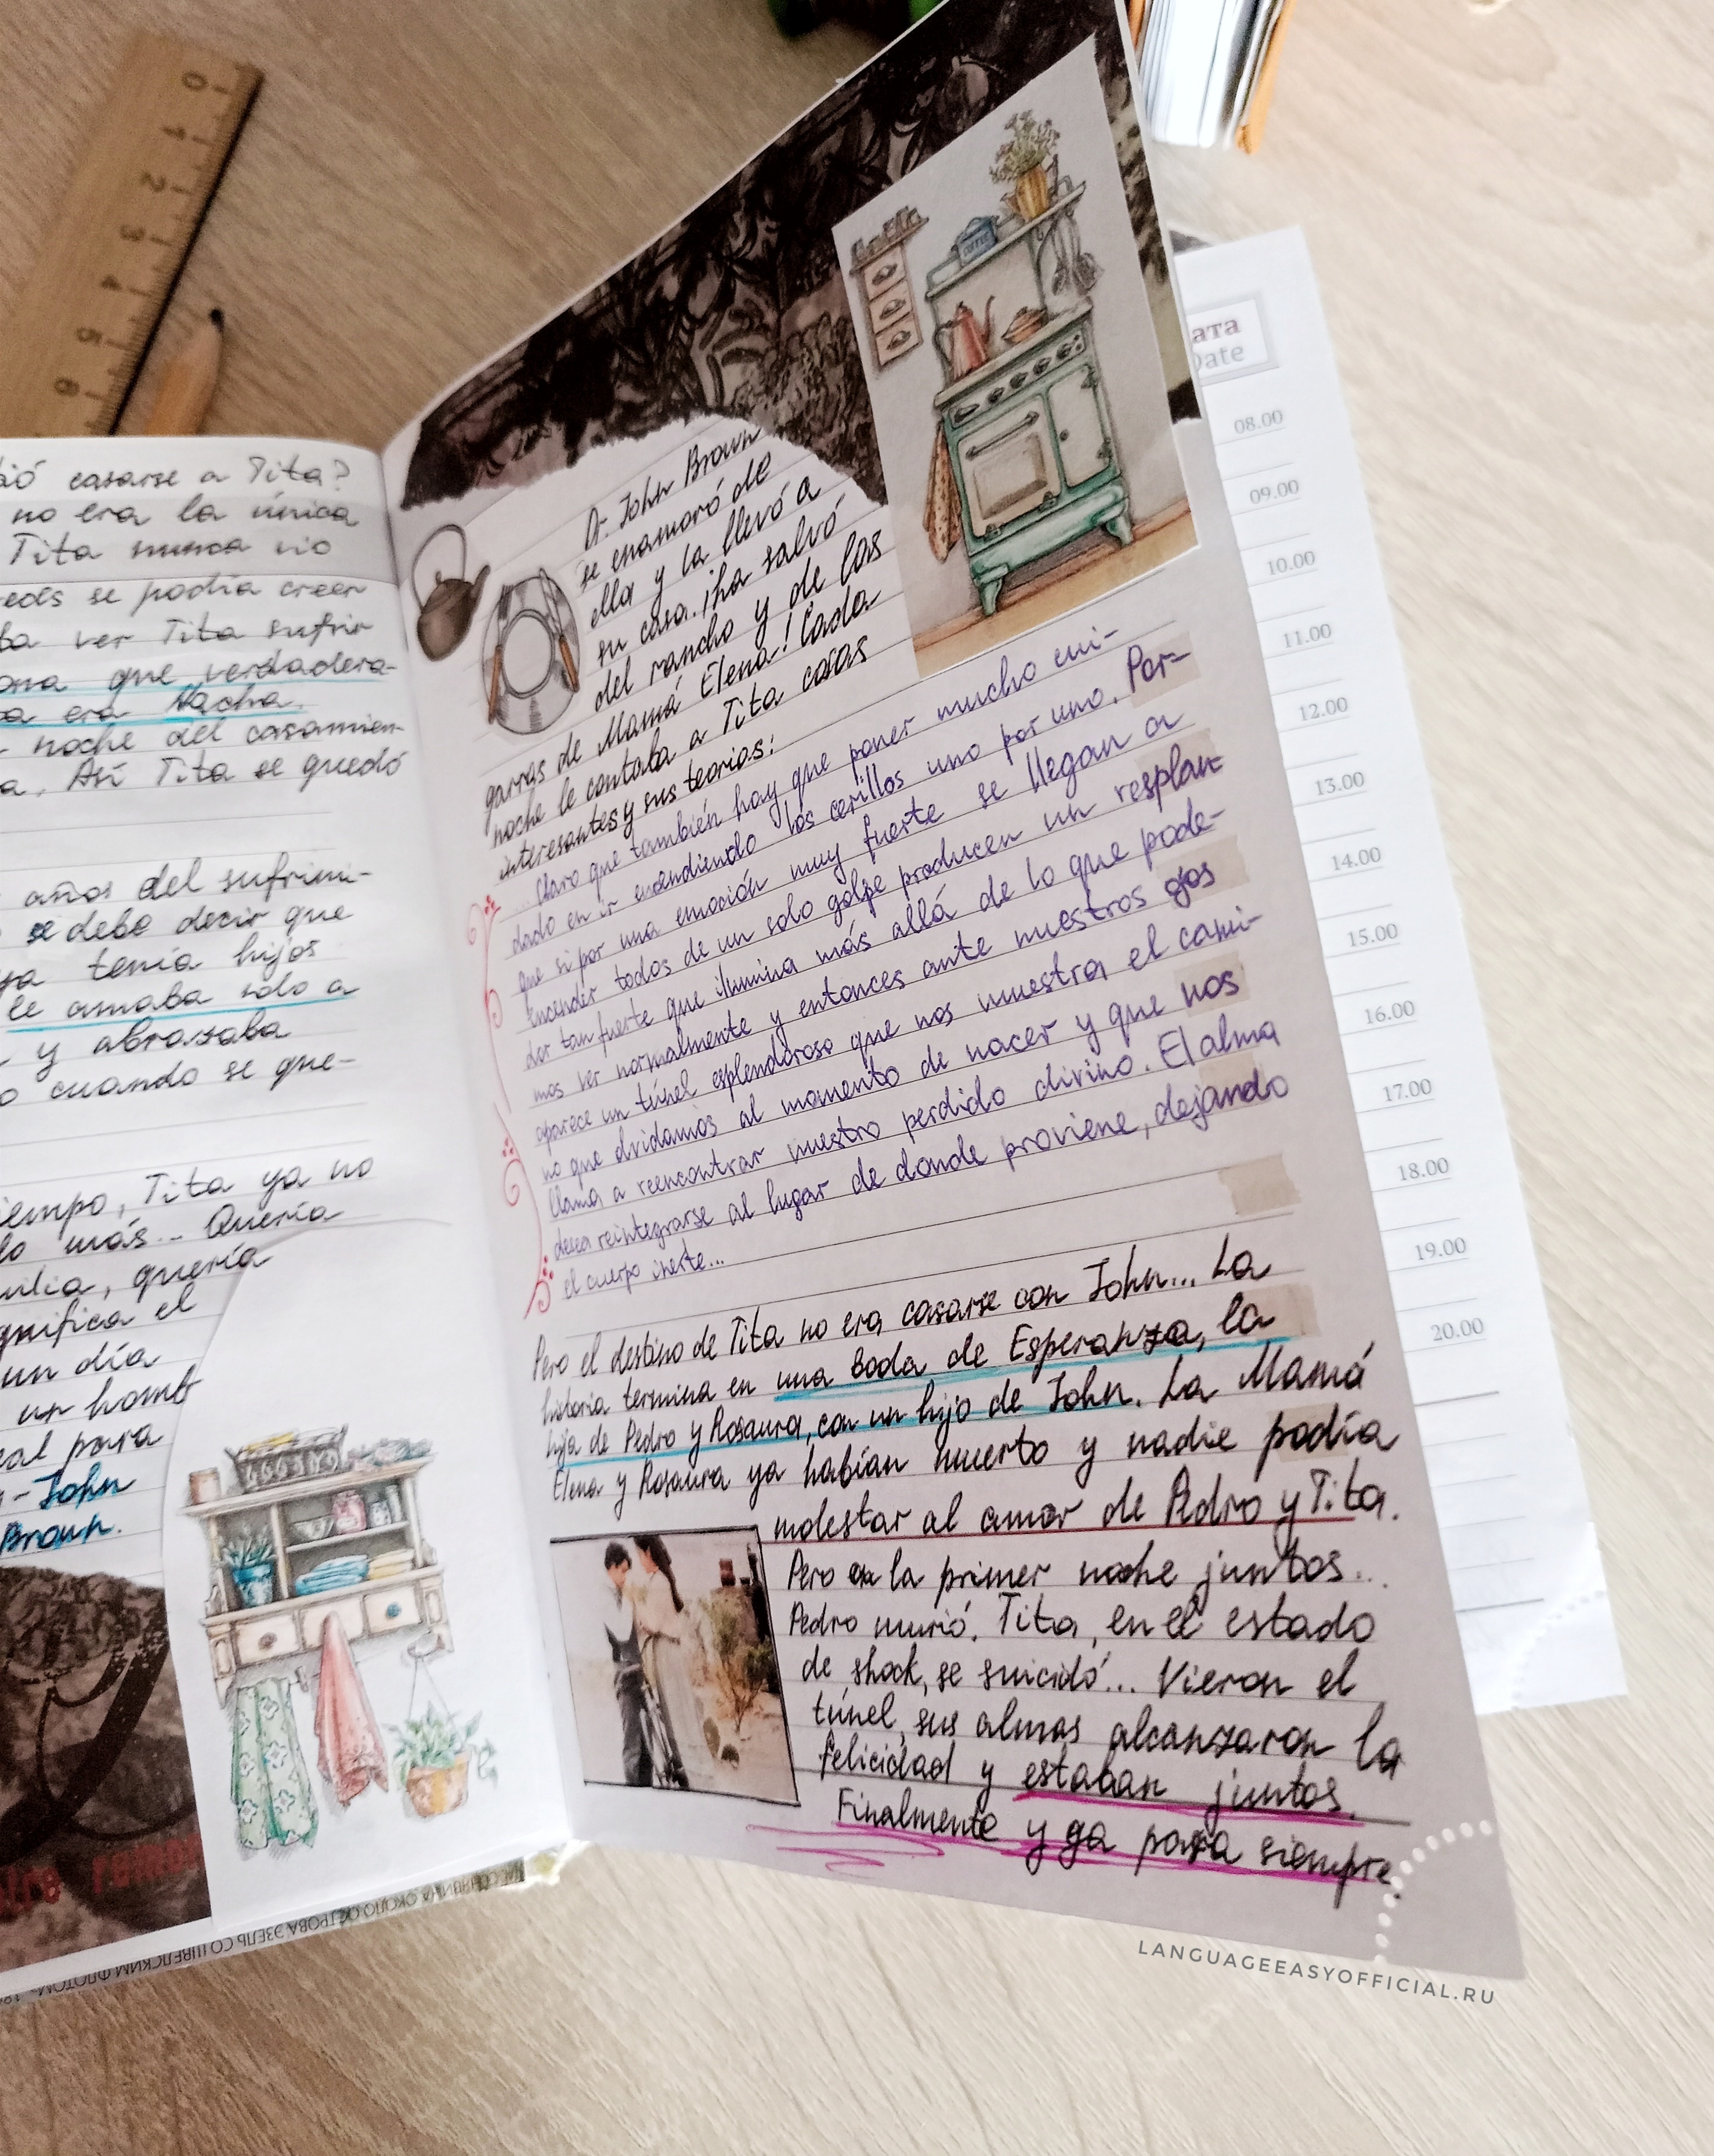 casarse a Tita?
no era la única
Tita nunca vio
se podía creer
ver Tita sufrir
que verdadera-
era Nacha.
noche del casamien-
Así Tita se quedó
años del sufrimi-
se debe decir que
ya tenía hijos
le amaba solo a
y abrazaba
cuando se que-
Tita ya no
más... Quería
quería
el
un día
un homb
para
-John
Brown.
Dr John Brown
se enamoró de
ella y la llevó a
su casa. ¡ha salvó
del rancho y de las
garras de Mamá Elena! Cada
noche le contaba a Tita cosas
interesantes y sus teorías:
... Claro que también hay que poner mucho cui-
dado en ir encendiendo los cerillos uno por uno. Por-
que si por una emoción muy fuerte se llegan a
encender todos de un solo golpe producen un resplan-
dor tan fuerte que ilumina más allá de lo que pode-
mos ver normalmente y entonces ante nuestros ojos
aparece un túnel esplendoroso que nos muestra el cami-
no que olvidamos al momento de nacer y que nos
llama a reencontrar nuestro perdido divino. El alma
desea reintegrarse al lugar de donde proviene, dejando
el cuerpo inerte...
Pero el destino de Tita no era casarse con John... La
historia termina en una boda de Esperanza, la
hija de Pedro y Rosaura, con un hijo de John. La Mamá
Elena y Rosaura ya habían muerto y nadie podía
molestar al amor de Pedro y Tita.
Pero en la primer noche juntos...
Pedro murió. Tita, en el estado
de shock, se suicidó... Vieron el
túnel, sus almas alcanzaron la
felicidad y estaban juntos.
Finalmente y ya para siempre.
ата
Date
08.00
09.00
10.00
11.00
12.00
13.00
14.00
15.00
16.00
17.00
18.00
19.00
20.00
0
1
2
3
4
5
6
COFFEE
ОКОЛО ОСТРОВА ЭЗЕЛЬ СО ШВЕДСКИМ ФЛОТОМ
LANGUAGEEASYOFFICIAL.RU